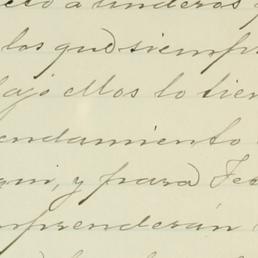 a linderos
los que siempr
bajo ellos lo tien
endamiento
qui, y para Fe
mprenderán